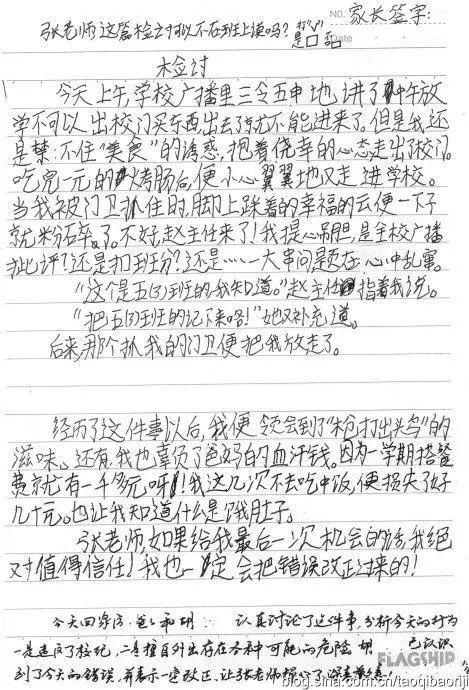 张老师这篇检讨可以不在班上读吗？打"√" 是□ 否□
NO.
Date
家长签字：
检讨
今天上午，学校广播里三令五申地讲了中午放
学不可以出校门买东西出去了就不能进来了。但是我还
是禁不住"美食"的诱惑，抱着侥幸的心态走出了校门。
吃完一元的烤肠后，便小心翼翼地又走进学校。
当我被门卫抓住时，脚上踩着的幸福的云便一下子
就粉碎了。不好，赵主任来了！我提心吊胆，是全校广播
批评？还是扣班分？还是……一大串问题在心中乱窜。
"这个是五(3)班的，我知道。"赵主任指着我说。
"把五(3)班的记下来咯！"她又补充道。
后来，那个抓我的门卫便把我放走了。
经历了这件事以后，我便领会到了"枪打出头鸟"的
滋味。还有，我也辜负了爸妈的血汗钱。因为一学期搭餐
费就有一千多元呀！我这几次不去吃中饭，便损失了好
几十元。也让我知道什么是饿肚子。
张老师，如果给我最后一次机会的话，我绝
对值得信任！我也一定会把错误改正过来的！
今天回家后，爸爸和 认真讨论了这件事，分析今天的行为
一是违反了校纪，二是擅自外出存在各种可能的危险 已认识
到了今天的错误，并表示一定改正，让张老师操心了，
FLAGSHIP
blog.sina.com.cn/taoqibaoriji